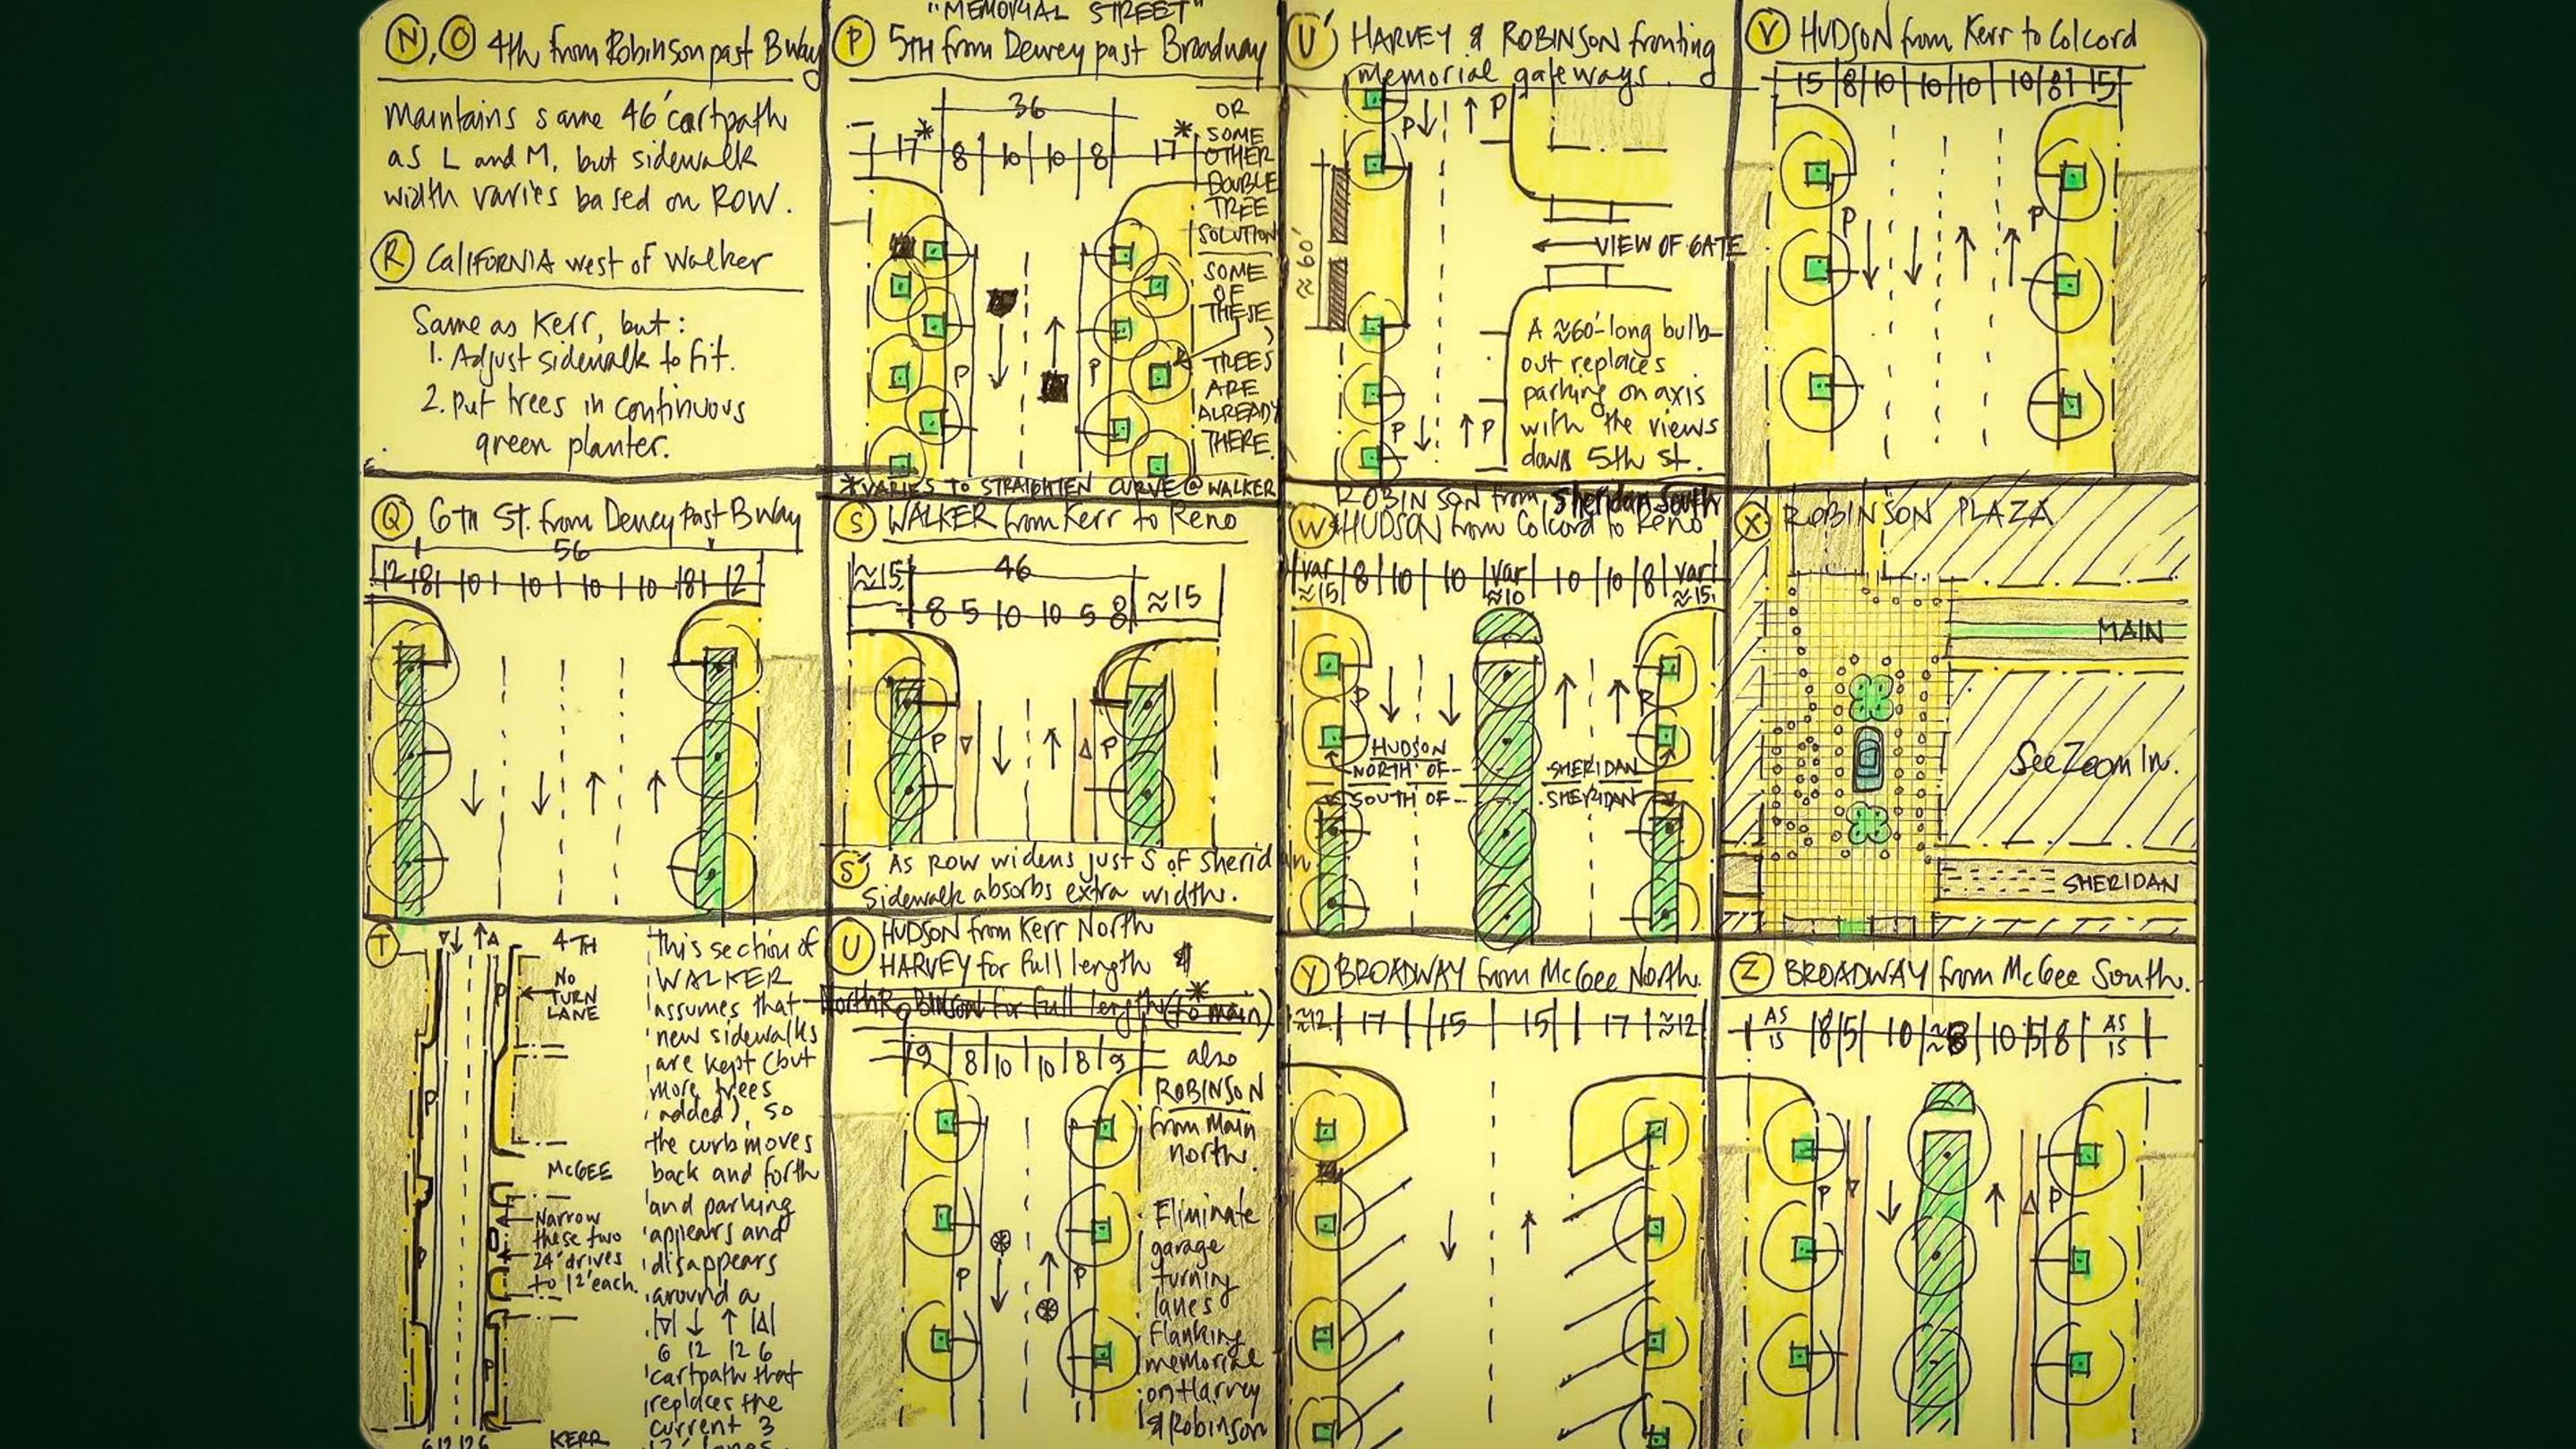 N, O 4th from Robinson past Bway
maintains same 46' cartpath
as L and M, but sidewalk
width varies based on ROW.
R CALIFORNIA west of Walker
Same as Kerr, but:
1. Adjust sidewalk to fit.
2. Put trees in continuous
green planter.
"MEMORIAL STREET"
P 5TH from Dewey past Broadway
36
17* 8 10 10 8 17*
OR
SOME
OTHER
DOUBLE
TREE
SOLUTION
SOME
OF
THESE
TREES
ARE
ALREADY
THERE.
P P
*VARIES TO STRAIGHTEN CURVE @ WALKER
U' HARVEY & ROBINSON fronting
memorial gateways.
P P
≈60'
VIEW OF GATE
A ≈60'-long bulb-
out replaces
parking on axis
with the views
down 5th st.
P P
V HUDSON from Kerr to Colcord
15 8 10 10 10 10 8 15
P P
Q 6TH ST. from Dewey Past Bway
56
12 8 10 10 10 10 8 12
S WALKER from Kerr to Reno
≈15 46 ≈15
8 5 10 10 5 8
P P
S' As ROW widens just S of Sheridan
Sidewalk absorbs extra width.
ROBINSON from Sheridan South
W & HUDSON from Colcord to Reno
var ≈15 8 10 10 var ≈10 10 10 8 var ≈15
P
HUDSON
NORTH OF -- SHERIDAN
SOUTH OF -- SHERIDAN
X ROBINSON PLAZA
MAIN
See Zoom In.
SHERIDAN
T
4TH
NO
TURN
LANE
P
P
McGEE
Narrow
these two
24' drives
to 12' each.
P
P
KERR
6 12 12 6
This section of
WALKER
assumes that
new sidewalks
are kept (but
more trees
added), so
the curb moves
back and forth
and parking
appears and
disappears
around a
6 12 12 6
cartpath that
replaces the
current 3
12' lanes.
U HUDSON from Kerr North
HARVEY for full length &
North Robinson for full length* (to main)
9 8 10 10 8 9
P P
also
ROBINSON
from Main
north.
Eliminate
garage
turning
lanes
flanking
memorial
on Harvey
& Robinson
Y BROADWAY from McGee North.
≈12 17 15 15 17 ≈12
Z BROADWAY from McGee South.
AS IS 8 5 10 ≈8 10 5 8 AS IS
P P